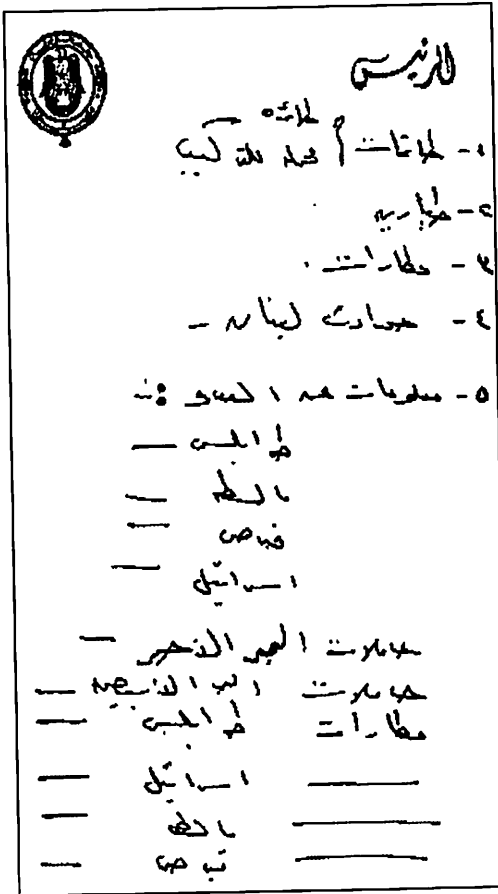 الرئيس
١- طائرات
٢- 
٣- مطارات .
٤- حوادث لبنان –
٥- معلومات عن
طرابلس —
مالطه —
قبرص —
اسرائيل —
حاملات البحر الاحمر —
حاملات البحر الابيض —
مطارات طرابلس —
—— اسرائيل —
—— مالطه —
—— قبرص —